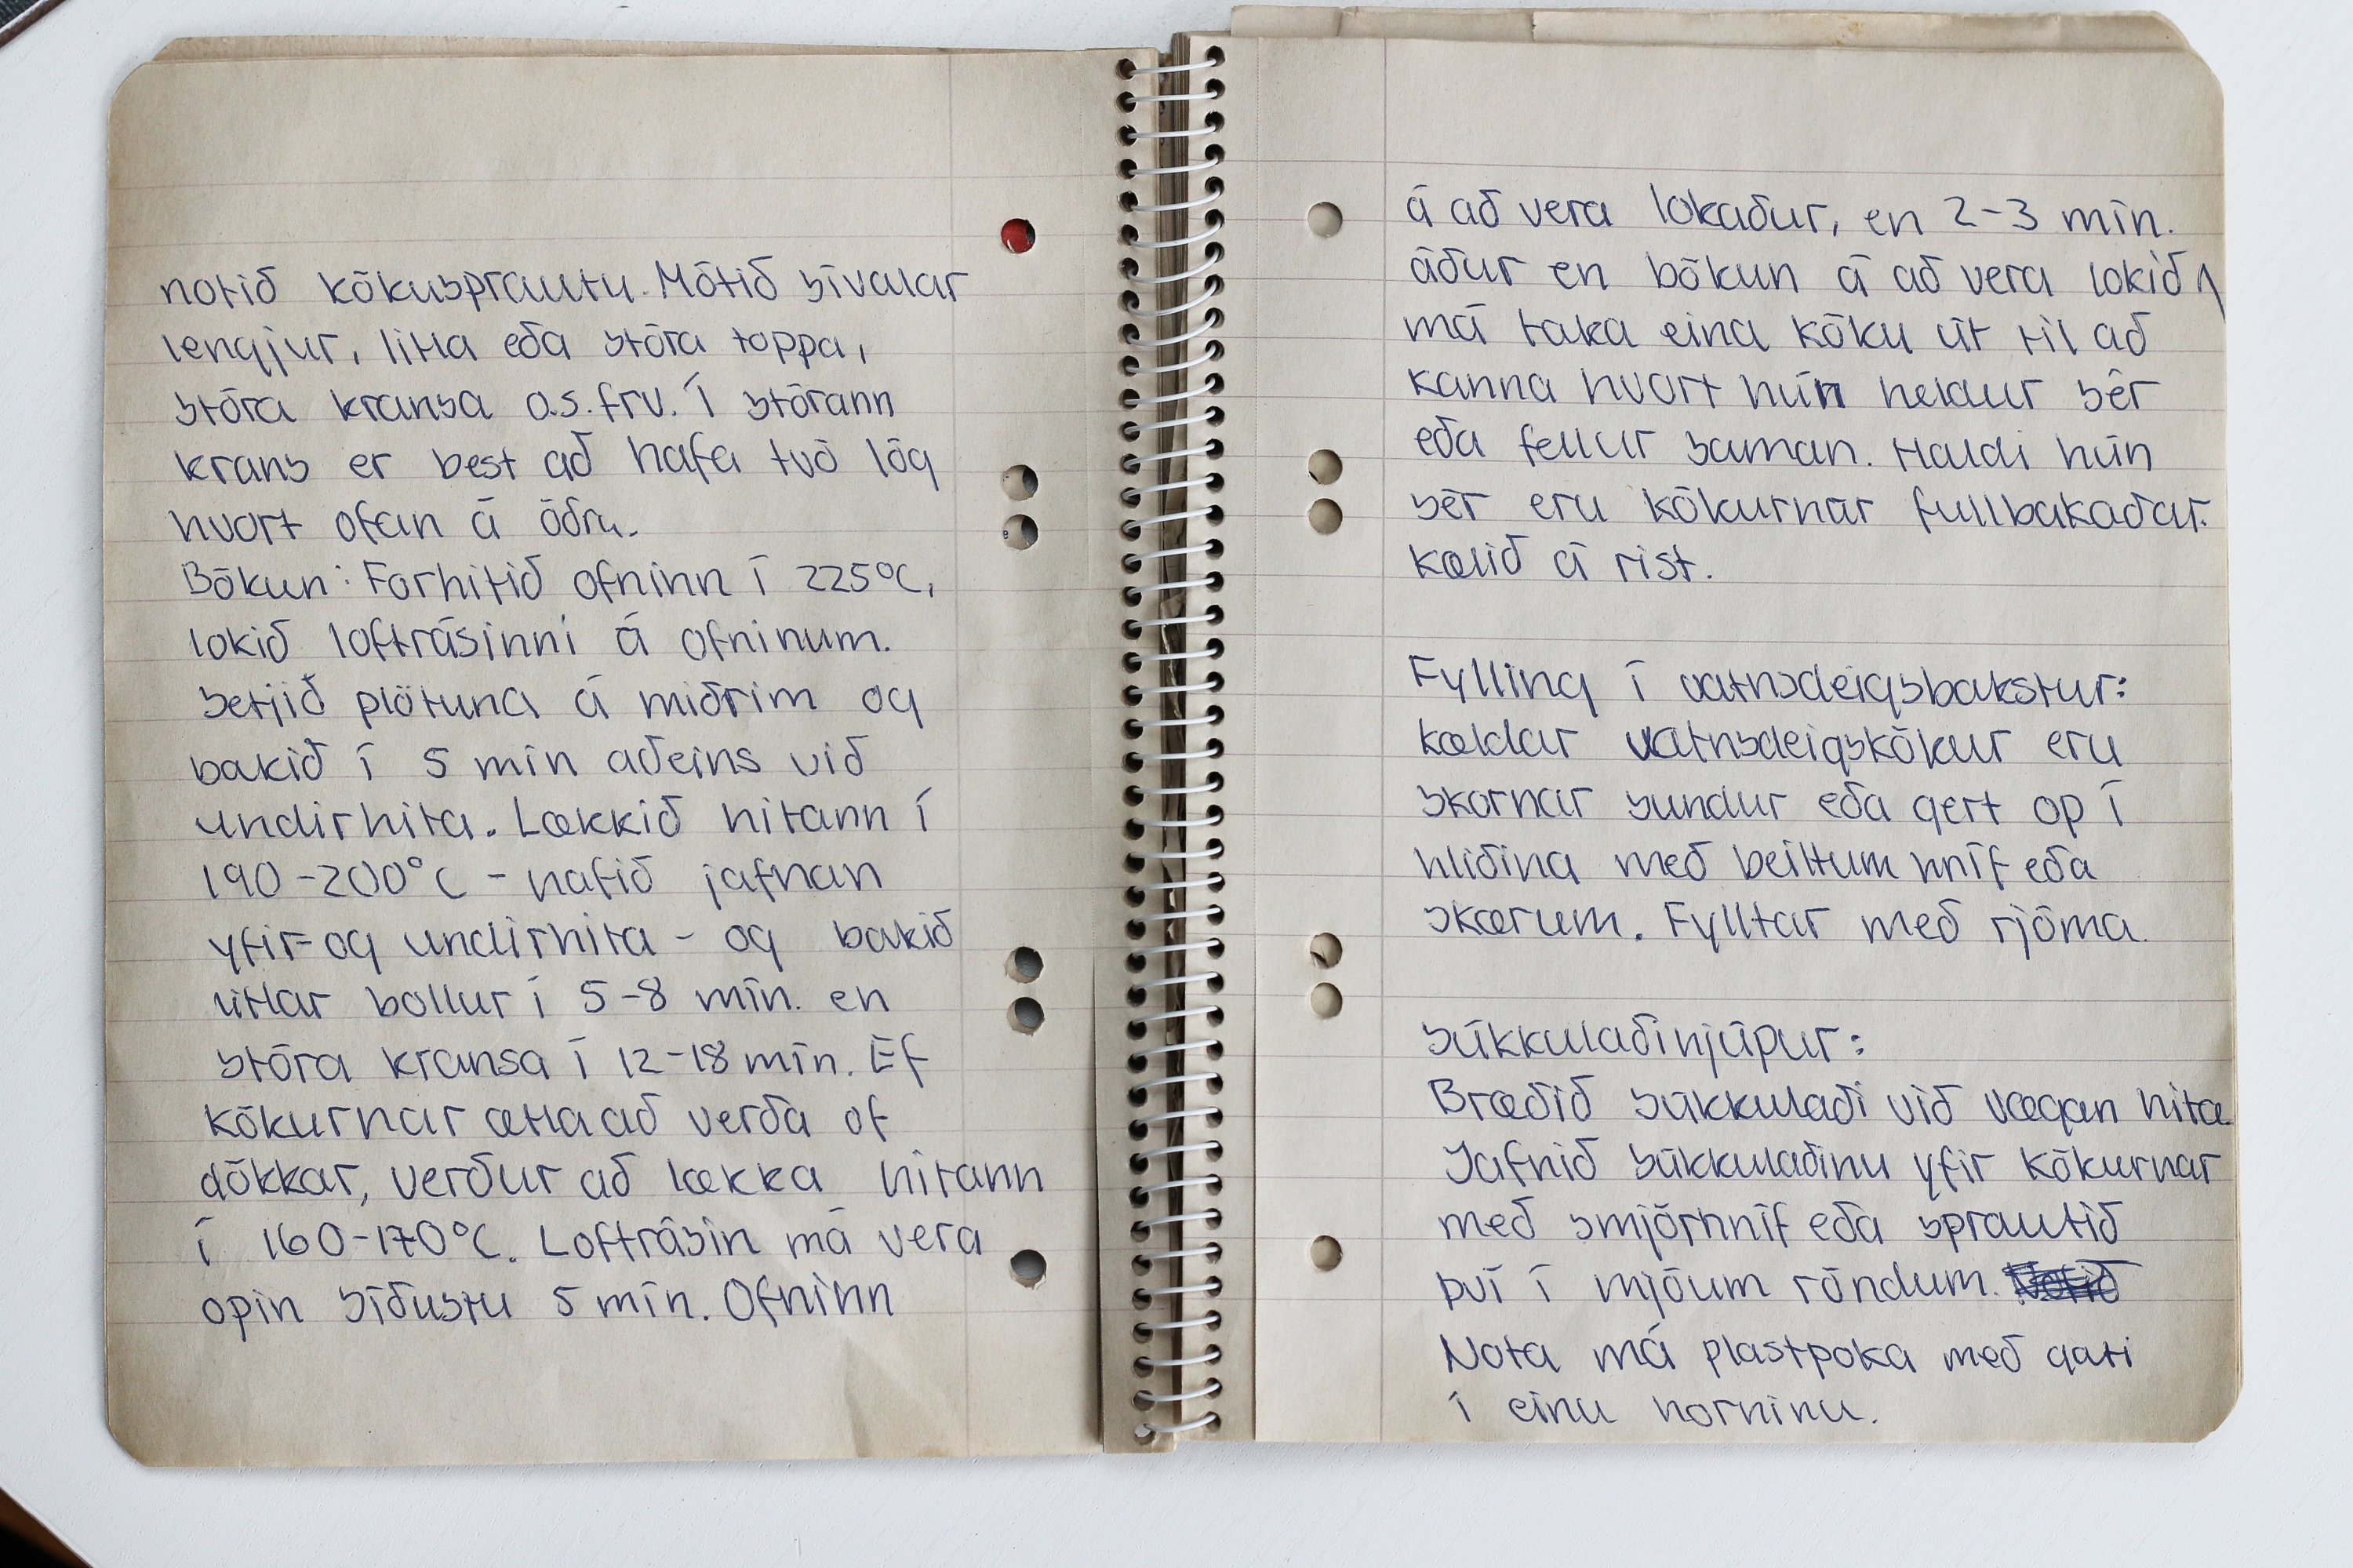 notið kökusprautu. Mótið sívalar
lengjur, litla eða stóra toppa,
stóra kransa o.s.frv. Í stórann
krans er best að hafa tvö lög
hvort ofan á öðru.
Bökun: Forhitið ofninn í 225°C,
lokið loftrásinni á ofninum.
Setjið plötuna á miðrim og
bakið í 5 mín aðeins við
undirhita. Lækkið hitann í
190-200°C - hafið jafnan
yfir- og undirhita - og bakið
litlar bollur í 5-8 mín. en
stóra kransa í 12-18 mín. Ef
kökurnar ætla að verða of
dökkar, verður að lækka hitann
í 160-170°C. Loftrásin má vera
opin síðustu 5 mín. Ofninn
á að vera lokaður, en 2-3 mín.
áður en bökun á að vera lokið
má taka eina köku út til að
kanna hvort hún heldur sér
eða fellur saman. Haldi hún
sér eru kökurnar fullbakaðar.
Kælið á rist.
Fylling í vatnsdeigsbakstur:
Kældar vatnsdeigskökur eru
skornar sundur eða gert op í
hliðina með beittum hníf eða
skærum. Fylltar með rjóma.
Súkkulaðihjúpur:
Bræðið súkkulaði við vægan hita.
Jafnið súkkulaðinu yfir kökurnar
með smjörhníf eða sprautið
því í mjóum röndum.
Nota má plastpoka með gati
í einu horninu.